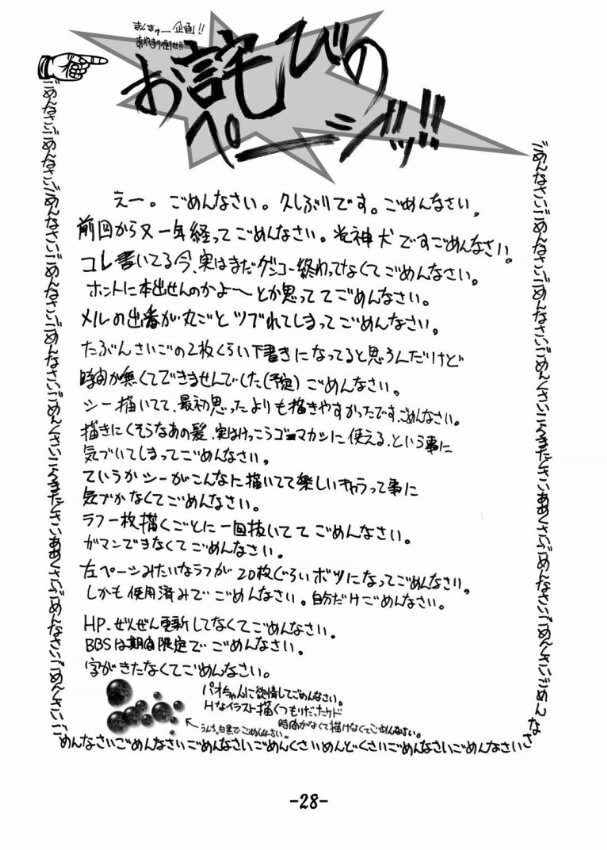 まんきゅー企画!!
お詫びの
ページッ!!
えー。ごめんなさい。久しぶりです。ごめんなさい。
前回から又一年経ってごめんなさい。光神犬ですごめんなさい。
コレ書いてる今、実はまだゲンコー終わってなくてごめんなさい。
ホントに本出せんのかよ〜とか思っててごめんなさい。
メルの出番が丸ごとツブれてしまってごめんなさい。
たぶんさいごの2枚くらい下書きになってると思うんだけど
時間が無くてできませんでした(予定)ごめんなさい。
シー描いてて、最初思ったよりも描きやすかったです、ごめんなさい。
描きにくそうなあの髪、実はけっこうゴマカシに使える、という事に
気づいてしまってごめんなさい。
ていうかシーがこんなに描いてて楽しいキャラって事に
気づかなくてごめんなさい。
ラフ一枚描くごとに一回抜いててごめんなさい。
ガマンできなくてごめんなさい。
左ページみたいなラフが20枚ぐらいボツになってごめんなさい。
しかも使用済みでごめんなさい。自分だけごめんなさい。
HP、ぜんぜん更新してなくてごめんなさい。
BBSは期間限定でごめんなさい。
字がきたなくてごめんなさい。
パオちゃんに欲情してごめんなさい。
Hなイラスト描くつもりだったけど
時間がなくて描けなくてごめんなさい。
白黒でごめんなさい。
めんなさいごめんなさいごめんなさいごめんくさいめんどくさいごめんなさいごめんなさい
-28-